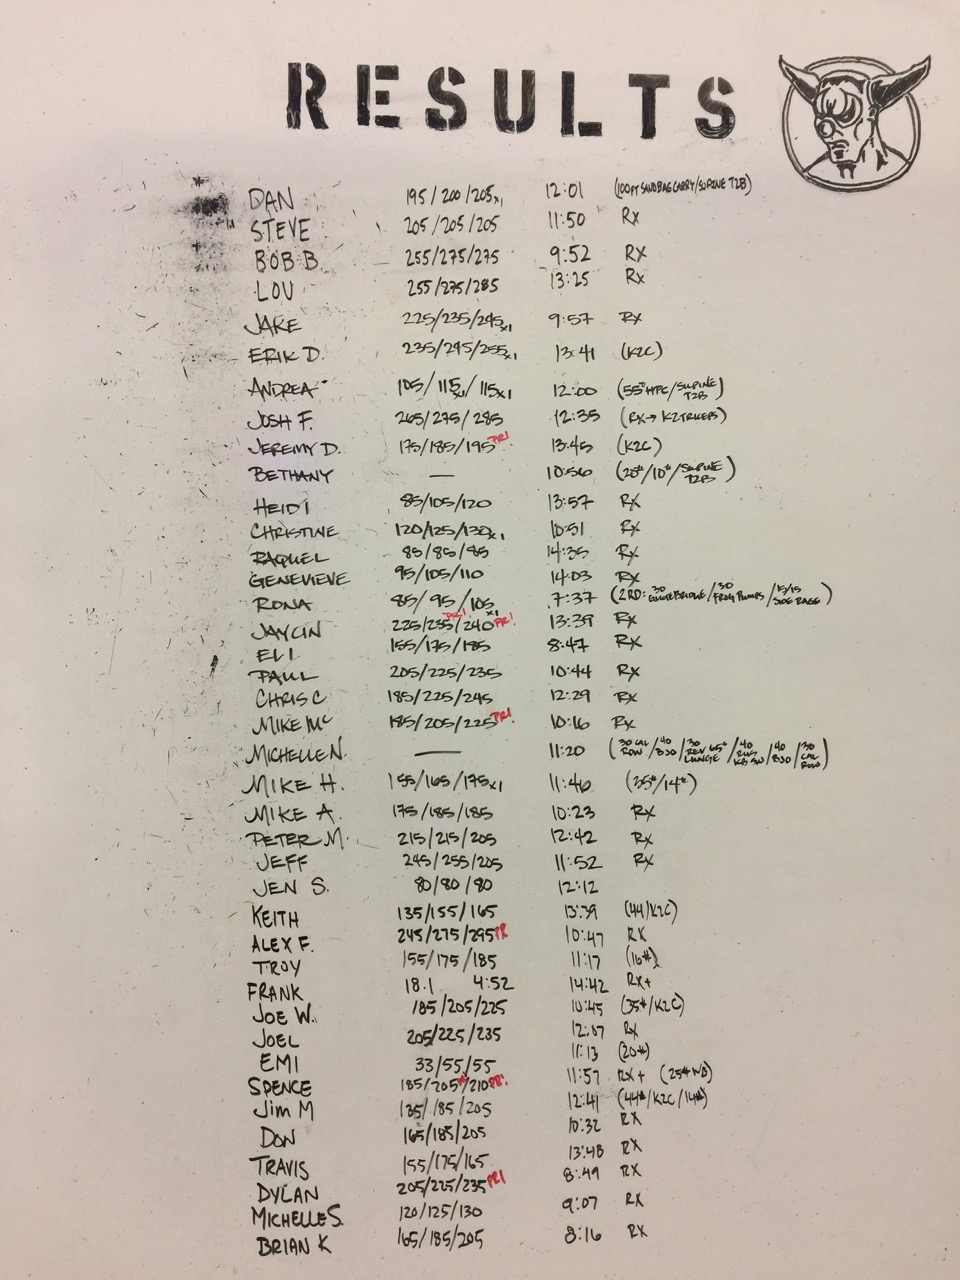 RESULTS
DAN 195/200/205x1 12:01 (100FT SANDBAG CARRY/SUPINE T2B)
STEVE 205/205/205 11:50 Rx
BOB B. 255/275/275 9:52 RX
LOU 255/275/285 13:25 Rx
JAKE 225/235/245x1 9:57 RX
ERIK D. 235/245/255x1 13:41 (K2C)
ANDREA 105/115x1/115x1 12:00 (55# HPC/SUPINE T2B)
JOSH F. 265/275/285 12:35 (RX→K2TRICEPS)
JEREMY D. 175/185/195 PR! 13:45 (K2C)
BETHANY — 10:56 (20#/10#/SUPINE T2B)
HEIDI 85/105/120 13:57 RX
CHRISTINE 120/125/130x1 10:51 RX
RAQUEL 85/85/85 14:35 RX
GENEVIEVE 95/105/110 14:03 RX
RONA 85/95/105x1 7:37 (2RD: 30 GLUTE BRIDGE/30 FROG PUMPS/15/15 SIDE)
JAYLIN 225/235 PR!/240 PR! 13:39 RX
ELI 155/175/185 8:47 RX
PAUL 205/225/235 10:44 RX
CHRIS C 185/225/245 12:29 RX
MIKE Mc 185/205/225 PR! 10:16 RX
MICHELLE N. — 11:20 (30 CAL ROW/40 /30 REV 65# LUNGE/40 RUS KB SW/40 /30 CAL ROW)
MIKE H. 155/165/175x1 11:46 (35#/14#)
MIKE A. 175/185/185 10:23 RX
PETER M. 215/215/205 12:42 RX
JEFF 245/255/205 11:52 RX
JEN S. 80/80/80 12:12
KEITH 135/155/165 13:39 (44/K2C)
ALEX F. 245/275/295 PR 10:47 RX
TROY 155/175/185 11:17 (16#)
FRANK 18.1 4:52 14:42 RX+
JOE W. 185/205/225 10:45 (35#/K2C)
JOEL 205/225/235 12:07 RX
EMI 33/55/55 11:13 (20#)
SPENCE 185/205/210 PR! 11:57 RX+ (25# WB)
Jim M 135/185/205 12:41 (44#/K2C/14#)
DON 165/185/205 10:32 RX
TRAVIS 155/175/165 13:48 RX
DYLAN 205/225/235 PR! 8:49 RX
MICHELLE S. 120/125/130 9:07 RX
BRIAN K 165/185/205 8:16 RX